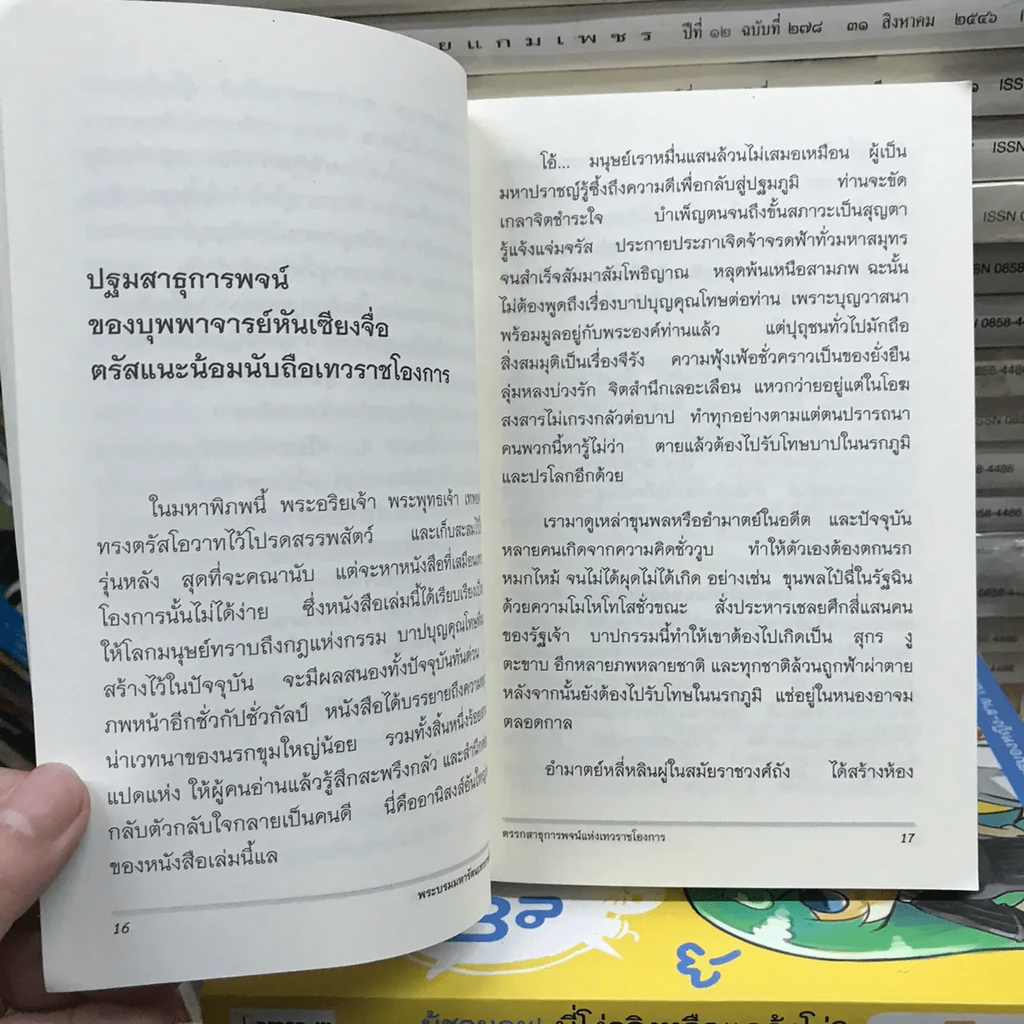 ยแกมเพชร ปีที่ ๑๒ ฉบับที่ ๒๗๘ ๓๑ สิงหาคม ๒๕๔๖
ISSN
ISSN
ISSN 0
SN 0858
0858-4
858-4486
858-4486
ปฐมสาธุการพจน์
ของบุพพาจารย์หันเซียงจื่อ
ตรัสแนะน้อมนับถือเทวราชโองการ
ในมหาพิภพนี้ พระอริยเจ้า พระพุทธเจ้า
ทรงตรัสโอวาทไว้โปรดสรรพสัตว์ และเก็บสะสมไว้
รุ่นหลัง สุดที่จะคณานับ แต่จะหาหนังสือที่เสมือน
โองการนั้นไม่ได้ง่าย ซึ่งหนังสือเล่มนี้ได้เรียบเรียง
ให้โลกมนุษย์ทราบถึงกฎแห่งกรรม บาปบุญคุณโทษ
สร้างไว้ในปัจจุบัน จะมีผลสนองทั้งปัจจุบันทันด่วน
ภพหน้าอีกชั่วกัปชั่วกัลป์ หนังสือได้บรรยายถึงความ
น่าเวทนาของนรกขุมใหญ่น้อย รวมทั้งสิ้นหนึ่งร้อย
แปดแห่ง ให้ผู้คนอ่านแล้วรู้สึกสะพรึงกลัว และสำนึก
กลับตัวกลับใจกลายเป็นคนดี นี่คืออานิสงส์อันใหญ่
ของหนังสือเล่มนี้แล
16
โอ้... มนุษย์เราหมื่นแสนล้วนไม่เสมอเหมือน ผู้เป็น
มหาปราชญ์รู้ซึ้งถึงความดีเพื่อกลับสู่ปฐมภูมิ ท่านจะขัด
เกลาจิตชำระใจ บำเพ็ญตนจนถึงขั้นสภาวะเป็นสุญตา
รู้แจ้งแจ่มจรัส ประกายประภาเจิดจ้าจรดฟ้าทั่วมหาสมุทร
จนสำเร็จสัมมาสัมโพธิญาณ หลุดพ้นเหนือสามภพ ฉะนั้น
ไม่ต้องพูดถึงเรื่องบาปบุญคุณโทษต่อท่าน เพราะบุญวาสนา
พร้อมมูลอยู่กับพระองค์ท่านแล้ว แต่ปุถุชนทั่วไปมักถือ
สิ่งสมมุติเป็นเรื่องจีรัง ความฟุ้งเฟ้อชั่วคราวเป็นของยั่งยืน
ลุ่มหลงบ่วงรัก จิตสำนึกเลอะเลือน แหวกว่ายอยู่แต่ในโอฆ
สงสารไม่เกรงกลัวต่อบาป ทำทุกอย่างตามแต่ตนปรารถนา
คนพวกนี้หารู้ไม่ว่า ตายแล้วต้องไปรับโทษบาปในนรกภูมิ
และปรโลกอีกด้วย
เรามาดูเหล่าขุนพลหรืออำมาตย์ในอดีต และปัจจุบัน
หลายคนเกิดจากความคิดชั่ววูบ ทำให้ตัวเองต้องตกนรก
หมกไหม้ จนไม่ได้ผุดไม่ได้เกิด อย่างเช่น ขุนพลไป๋ฉี่ในรัฐฉิน
ด้วยความโมโหโทโสชั่วขณะ สั่งประหารเชลยศึกสี่แสนคน
ของรัฐเจ้า บาปกรรมนี้ทำให้เขาต้องไปเกิดเป็น สุกร งู
ตะขาบ อีกหลายภพหลายชาติ และทุกชาติล้วนถูกฟ้าผ่าตาย
หลังจากนั้นยังต้องไปรับโทษในนรกภูมิ แช่อยู่ในหนองอาจม
ตลอดกาล
อำมาตย์หลี่หลินผู่ในสมัยราชวงศ์ถัง ได้สร้างห้อง
ตรรกสาธุการพจน์แห่งเทวราชโองการ 17